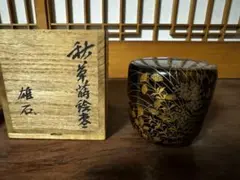 秋草蒔絵枣
雄石